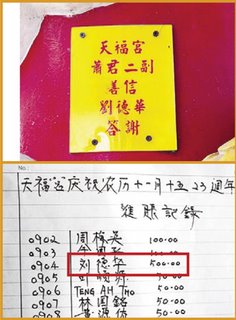 天福宮
蕭君二副
善信
劉德華
答謝
No.
天福宮庆祝农历十一月十五23週年
進賬記錄
0902 周株英 100.00
0903
0904 刘德华 500.00
0905 50.00
0906 TENG AH THO 50.00
0907 林国铭 50.00
0908 黄源佑 50.00